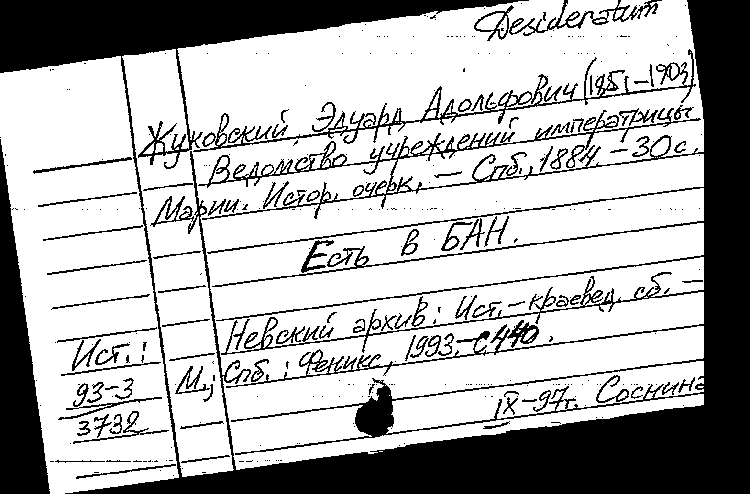 Desideratum
Жуковский, Эдуард Адольфович (1851-1903)
Ведомство учреждений императрицы
Марии. Истор. очерк, - Спб., 1884. - 30 с.
Есть в БАН.
Невский архив: Ист.-краевед. сб. -
М.; Спб.: Феникс, 1993.- С.440.
Ист.:
93-3
3732
IX-97г. Соснина